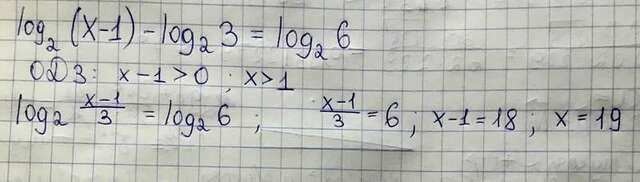 log₂ (x-1) - log₂ 3 = log₂ 6
ОДЗ: x-1>0 ; x>1
log₂ (x-1)/3 = log₂ 6 ; (x-1)/3 = 6 ; x-1=18 ; x=19